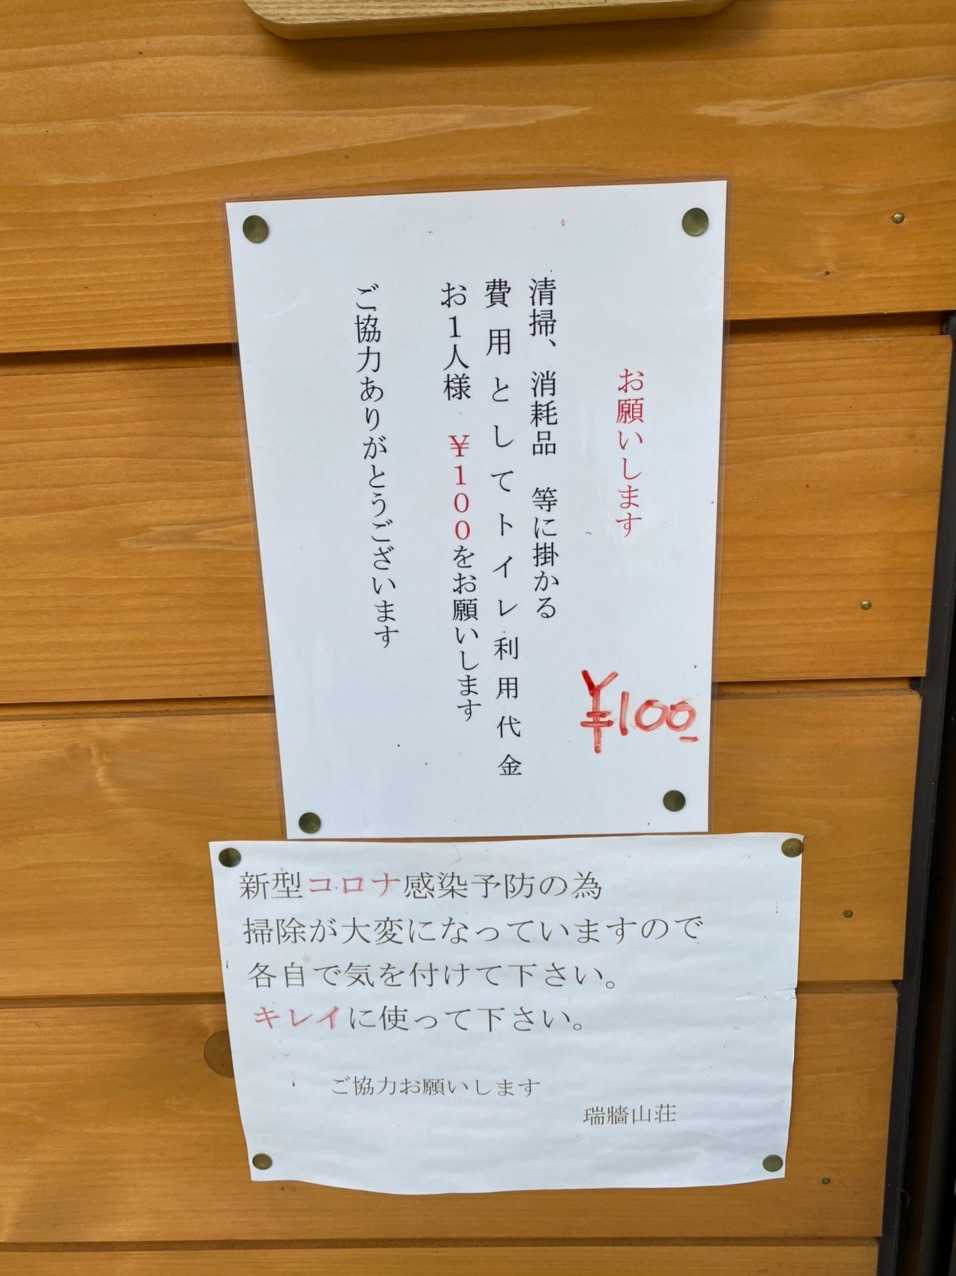 お願いします
清掃、消耗品　等に掛かる
費用としてトイレ利用代金
お１人様　￥１００をお願いします
ご協力ありがとうございます
¥100
新型コロナ感染予防の為
掃除が大変になっていますので
各自で気を付けて下さい。
キレイに使って下さい。
ご協力お願いします
瑞牆山荘